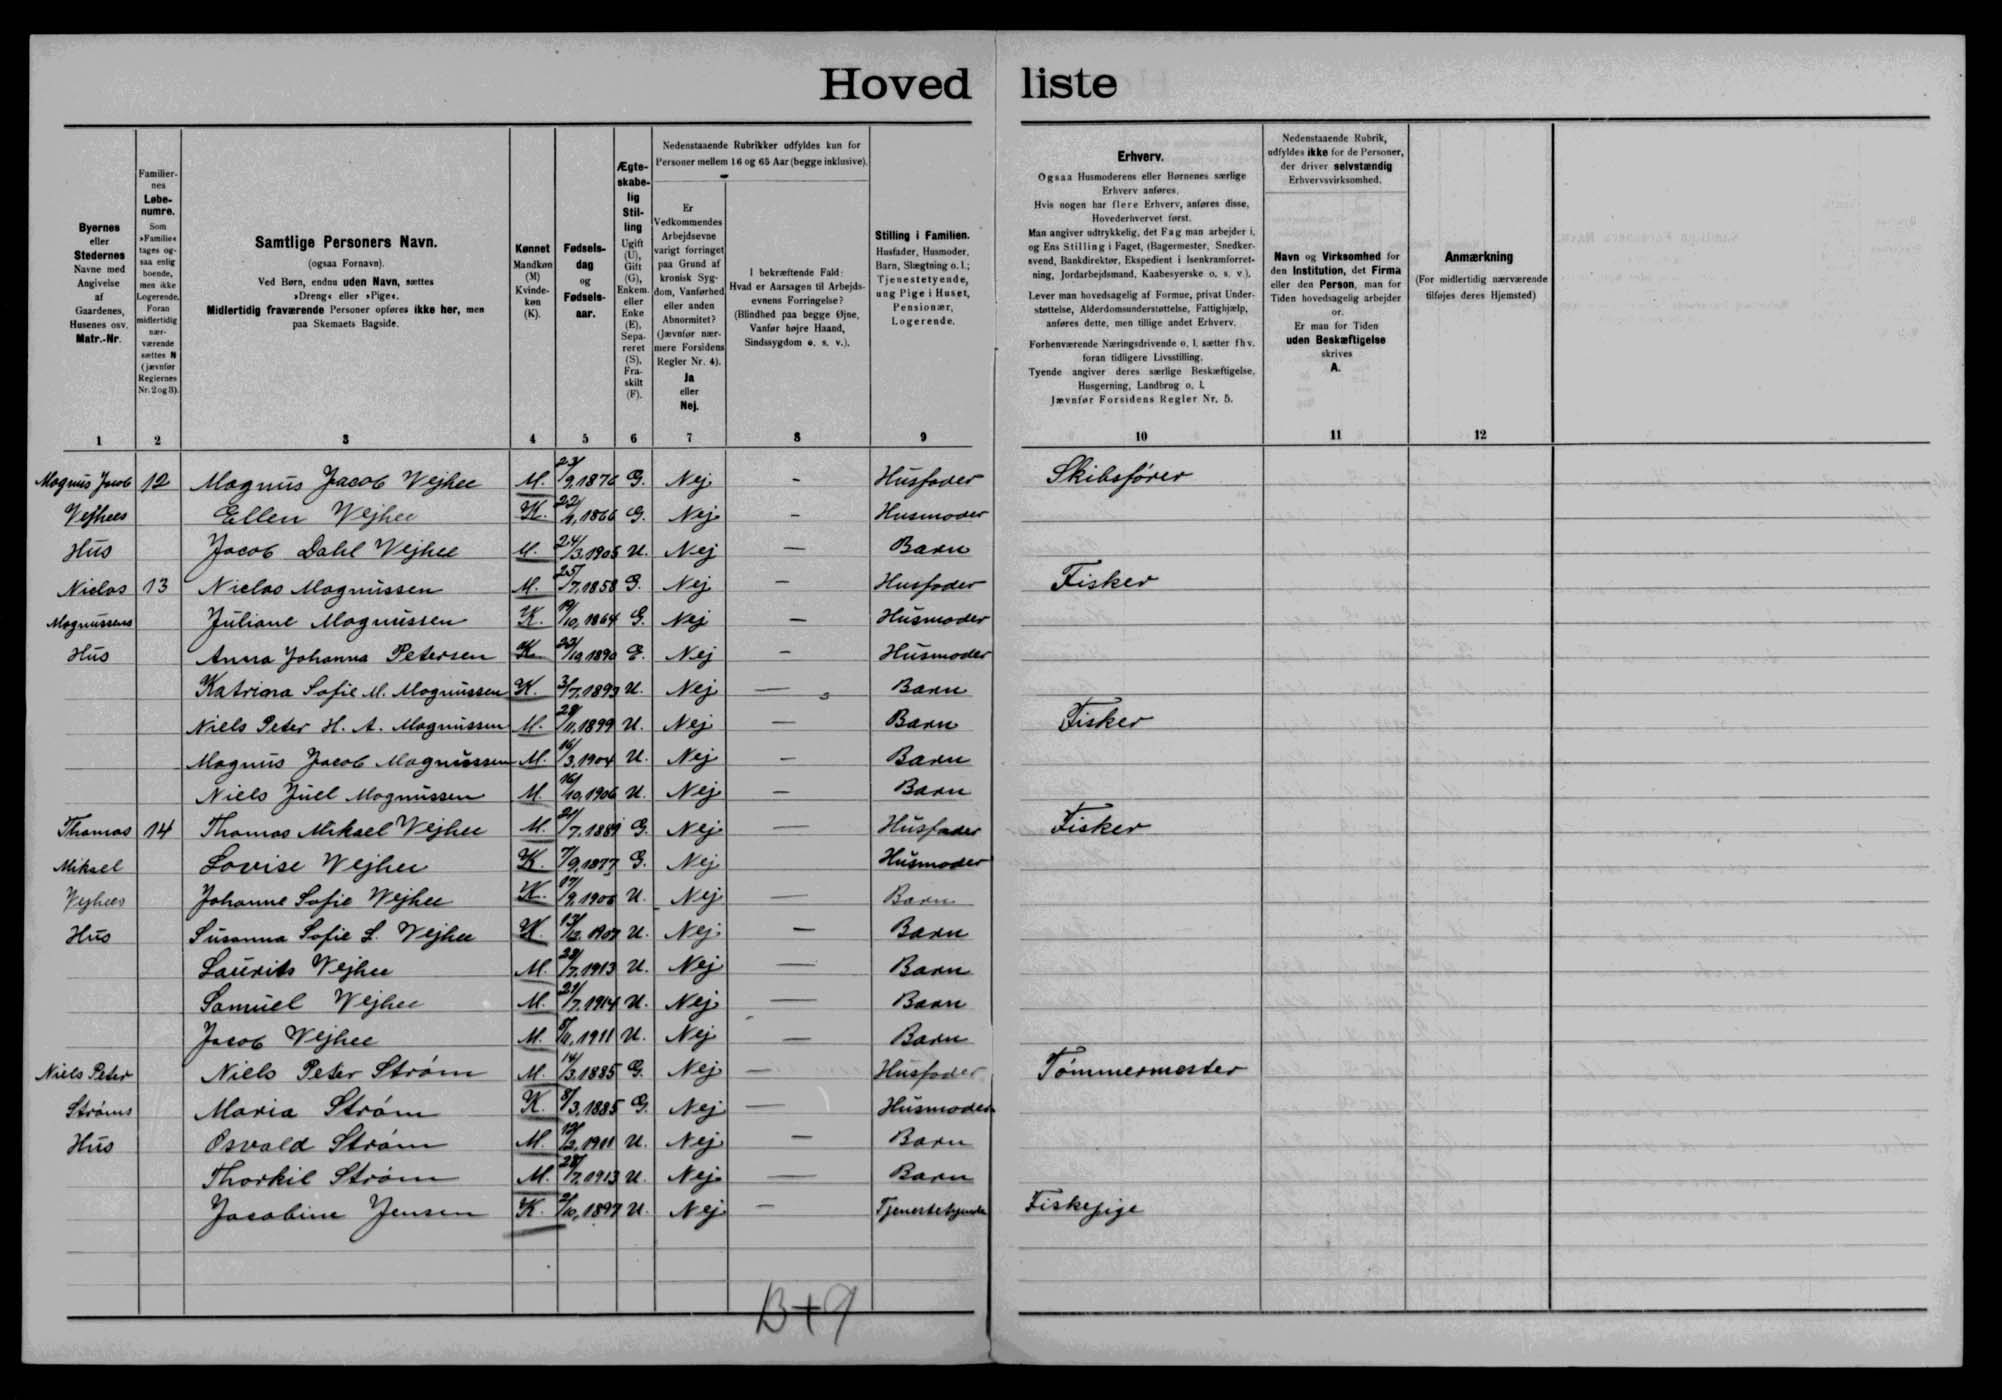 Hovedliste
Byernes
eller
Stedernes
Navne med
Angivelse
af
Gaardenes,
Husenes osv.
Matr.-Nr.
1
Familier-
nes
Løbe-
numre.
Som
»Familie«
tages og-
saa enlig
boende,
men ikke
Logerende.
Foran
midlertidig
nær-
værende
sættes N
(jævnfør
Reglernes
Nr. 2 og 3).
2
Samtlige Personers Navn.
(ogsaa Fornavn).
Ved Børn, endnu uden Navn, sættes
»Dreng« eller »Pige«.
Midlertidig fraværende Personer opføres ikke her, men
paa Skemaets Bagside.
3
Kønnet
Mandkøn
(M)
Kvinde-
køn
(K).
4
Fødsels-
dag
og
Fødsels-
aar.
5
Ægte-
skabe-
lig
Stil-
ling
Ugift
(U),
Gift
(G),
Enkem.
eller
Enke
(E),
Sepa-
reret
(S),
Fra-
skilt
(F).
6
Nedenstaaende Rubrikker udfyldes kun for
Personer mellem 16 og 65 Aar (begge inklusive).
Er
Vedkommendes
Arbejdsevne
varigt forringet
paa Grund af
kronisk Syg-
dom, Vanførhed
eller anden
Abnormitet?
(Jævnfør nær-
mere Forsidens
Regler Nr. 4).
Ja
eller
Nej.
7
I bekræftende Fald:
Hvad er Aarsagen til Arbejds-
evnens Forringelse?
(Blindhed paa begge Øjne,
Vanfør højre Haand,
Sindssygdom o. s. v.).
8
Stilling i Familien.
Husfader, Husmoder,
Barn, Slægtning o. l.;
Tjenestetyende,
ung Pige i Huset,
Pensionær,
Logerende.
9
Erhverv.
Ogsaa Husmoderens eller Børnenes særlige
Erhverv anføres.
Hvis nogen har flere Erhverv, anføres disse,
Hovederhvervet først.
Man angiver udtrykkelig, det Fag man arbejder i,
og Ens Stilling i Faget, (Bagermester, Snedker-
svend, Bankdirektør, Ekspedient i Isenkramforret-
ning, Jordarbejdsmand, Kaabesyerske o. s. v.).
Lever man hovedsagelig af Formue, privat Under-
støttelse, Alderdomsunderstøttelse, Fattighjælp,
anføres dette, men tillige andet Erhverv.
Forhenværende Næringsdrivende o. l. sætter fhv.
foran tidligere Livsstilling.
Tyende angiver deres særlige Beskæftigelse,
Husgerning, Landbrug o. l.
Jævnfør Forsidens Regler Nr. 5.
10
Nedenstaaende Rubrik,
udfyldes ikke for de Personer,
der driver selvstændig
Erhvervsvirksomhed.
Navn og Virksomhed for
den Institution, det Firma
eller den Person, man for
Tiden hovedsagelig arbejder
or.
Er man for Tiden
uden Beskæftigelse
skrives
A.
11
Anmærkning
(For midlertidig nærværende
tilføjes deres Hjemsted)
12
Magnus Jacob 12 Magnus Jacob Wejhee M. 23/9.1876 G. Nej - Husfader Skibsfører
Vejhees Ellen Wejhee K. 22/1.1866 G. Nej - Husmoder
Hus Jacob Dahl Wejhee M. 24/3.1905 U. Nej - Barn
Niclas 13 Niclas Magnussen M. 25/7.1858 G. Nej - Husfader Fisker
Magnussens Juliane Magnussen K. 19/10.1864 G. Nej - Husmoder
Hus Anna Johanna Petersen K. 1890 E. Nej - Husmoder
Katrina Sofie M. Magnussen K. 3/7.1893 U. Nej - Barn
Niels Peter H. A. Magnussen M. 28/11.1899 U. Nej - Barn Fisker
Magnus Jacob Magnussen M. 16/3.1904 U. Nej - Barn
Niels Juel Magnussen M. 16/10.1906 U. Nej - Barn
Thomas 14 Thomas Miksel Wejhee M. G. Nej - Husfader Fisker
Miksel Lovise Wejhee K. 7/9.1877 G. Nej Husmoder
Vejhees Johanne Sofie Wejhee K. U. Nej - Barn
Hus Susanna Sofie L. Wejhee K. U. Nej - Barn
Laurits Wejhee M. 28/7.1913 U. Nej - Barn
Samuel Wejhee M. 21/7.1914 U. Nej - Barn
Jacob Wejhee M. 1911 U. Nej - Barn
Niels Peter Niels Peter Strøm M. 14/3.1885 G. Nej - Husfader Tømmermester
Strøms Maria Strøm K. 8/3.1885 G. Nej - Husmoder
Hus Osvald Strøm M. 1911 U. Nej - Barn
Thorkil Strøm M. 28/7.1913 U. Nej - Barn
Jacobine Jensen K. 1897 U. Nej - Tjenestetyende Fiskepige
B+9